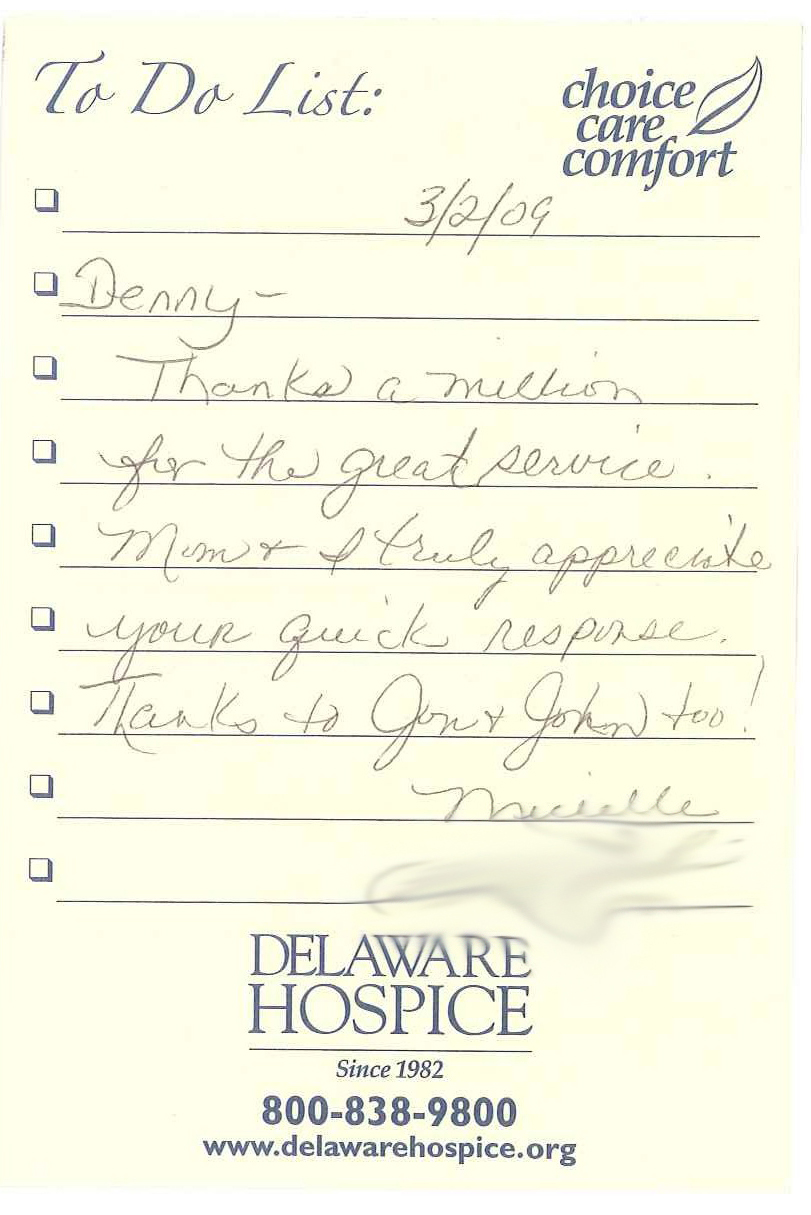 To Do List:
choice
care
comfort
3/2/09
Denny-
Thanks a million
for the great service.
Mom & I truly appreciate
your quick response.
Thanks to Jon & John too!
DELAWARE
HOSPICE
Since 1982
800-838-9800
www.delawarehospice.org